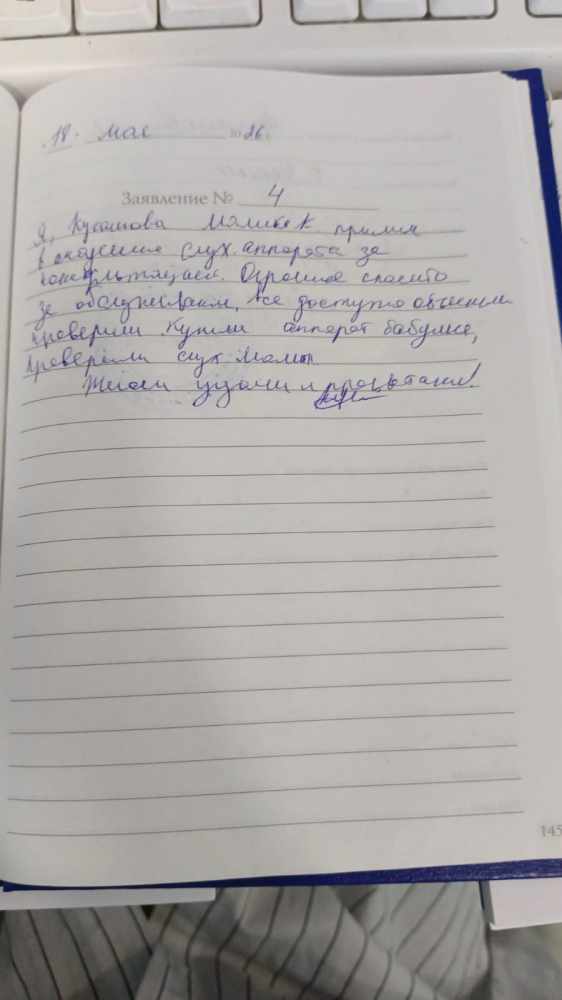 18. мая 26.
Заявление № 4
Я, Маликак пришли
в слух. аппарата за
консультацией. Огромное спасибо
за обслуживание, все доступно объяснили
проверили. Купили аппарат бабушке,
проверили слух мамы
Желаем удачи и процветания!
145